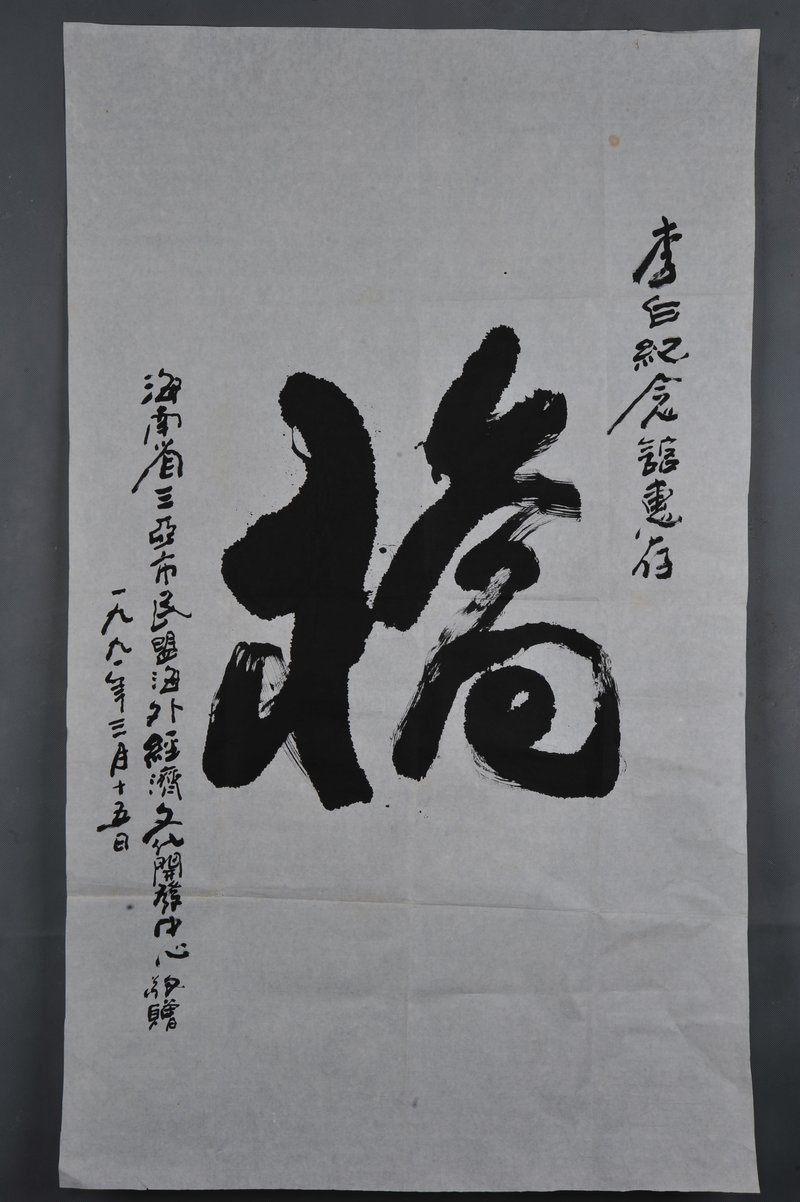 李白紀念館惠存
橋
海南省三亞市民盟海外經濟文化開發中心敬贈
一九九一年三月十五日